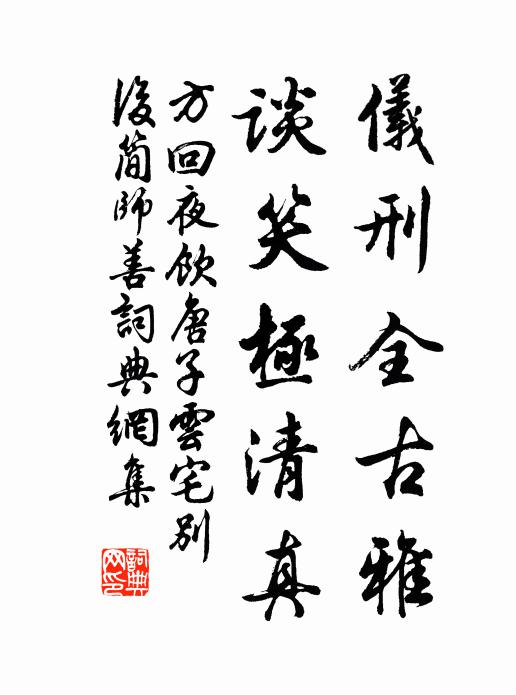 儀刑全古雅
談笑極清真
方回夜飲唐子雲宅別
後簡師善詞典網集
詞典網印